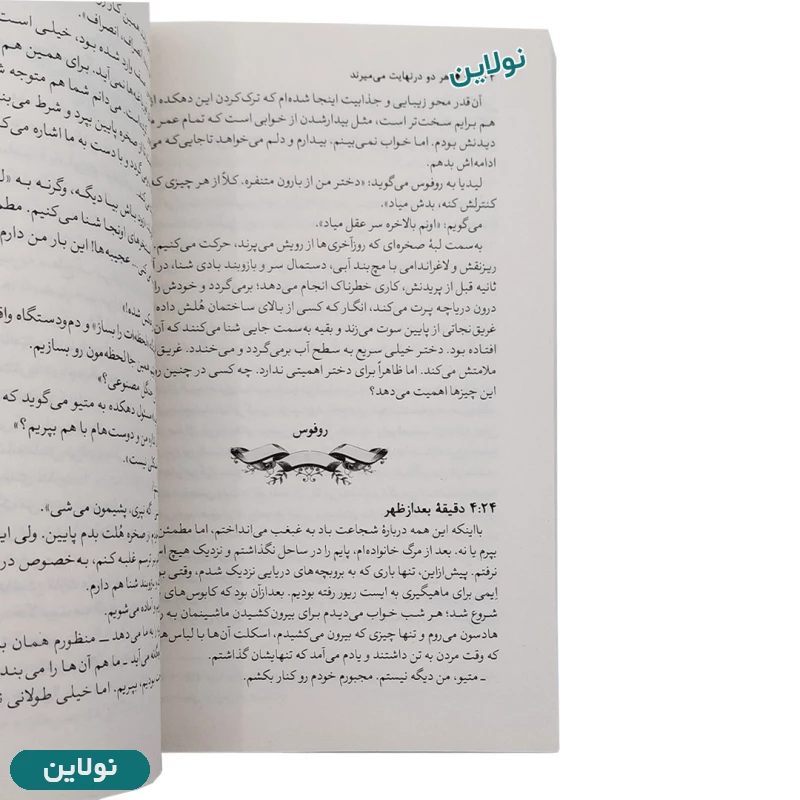 نولاین
هر دو درنهایت می‌میرند
آن‌قدر محو زیبایی و جذابیت اینجا شده‌ام که ترک‌کردن این دهکده
هم برایم سخت‌تر است، مثل بیدارشدن از خوابی است که تمام عمر
دیدنش بودم. اما خواب نمی‌بینم. بیدارم و دلم می‌خواهد تاجایی‌که
ادامه‌اش بدهم.
لیدیا به روفوس می‌گوید: «دختر من از بارون متنفره. کلاً از هر چیزی که
کنترلش کنه، بدش میاد».
می‌گویم: «اونم بالاخره سر عقل میاد».
به‌سمت لبهٔ صخره‌ای که روزآخری‌ها از رویش می‌پرند، حرکت می‌کنیم.
ریزنقش و لاغراندامی با مچ‌بند آبی، دستمال سر و بازوبند بادی شنا، در
ثانیه قبل از پریدنش، کاری خطرناک انجام می‌دهد؛ برمی‌گردد و خودش را
درون دریاچه پرت می‌کند، انگار که کسی از بالای ساختمان هُلش داده
غریق‌نجاتی از پایین سوت می‌زند و بقیه به‌سمت جایی شنا می‌کنند که
افتاده بود. دختر خیلی سریع به سطح آب برمی‌گردد و می‌خندد. غریق
ملامتش می‌کند. اما ظاهراً برای دختر اهمیتی ندارد. چه کسی در چنین
این چیزها اهمیت می‌دهد؟
روفوس
۴:۲۴ دقیقهٔ بعدازظهر
بااینکه این همه دربارهٔ شجاعت باد به غبغب می‌انداختم، اما مطمئن
بپرم یا نه. بعد از مرگ خانواده‌ام، پایم را در ساحل نگذاشتم و نزدیک هیچ
نرفتم. پیش‌ازاین، تنها باری که به بروبچه‌های دریایی نزدیک شدم، وقتی
اِیمی برای ماهیگیری به ایست ریور رفته بودیم. بعدازآن بود که کابوس‌های
شروع شد؛ هر شب خواب می‌دیدم برای بیرون‌کشیدن ماشینمان به
هادسون می‌روم و تنها چیزی که بیرون می‌کشیدم، اسکلت آن‌ها با لباس‌
که وقت مردن به تن داشتند و یادم می‌آمد که تنهایشان گذاشتم.
ـ متیو، من دیگه نیستم. مجبورم خودم رو کنار بکشم.
انصراف، انصراف».
وارد شده بود، خیلی است
نمی‌آید. برای همین هم
می‌دانم شما هم متوجه
صخره پایین بپرد و شرط
گردد و با دست به ما اشاره می‌کند
بیا دیگه، وگرنه به
اونجا شنا می‌کنیم.
عجیبه‌ها! این بار من دارم
شده!»
را بساز» و دم‌ودستگاه
لحظه‌مون رو بسازیم.
مصنوعی؟»
مسئول دهکده به متیو می‌گوید که
من و دوست‌هام با هم بپریم؟»
نیست».
نپری، پشیمون می‌شی».
از صخره هُلت بدم پایین. ولی
ترسم غلبه کنم، به‌خصوص در
بازوبند شنا هم دارم.
آماده می‌شویم.
به ما می‌دهد ـ منظورم همان
می‌آید ـ ما هم آن‌ها را
بپریم. اما خیلی طولانی
نولاین